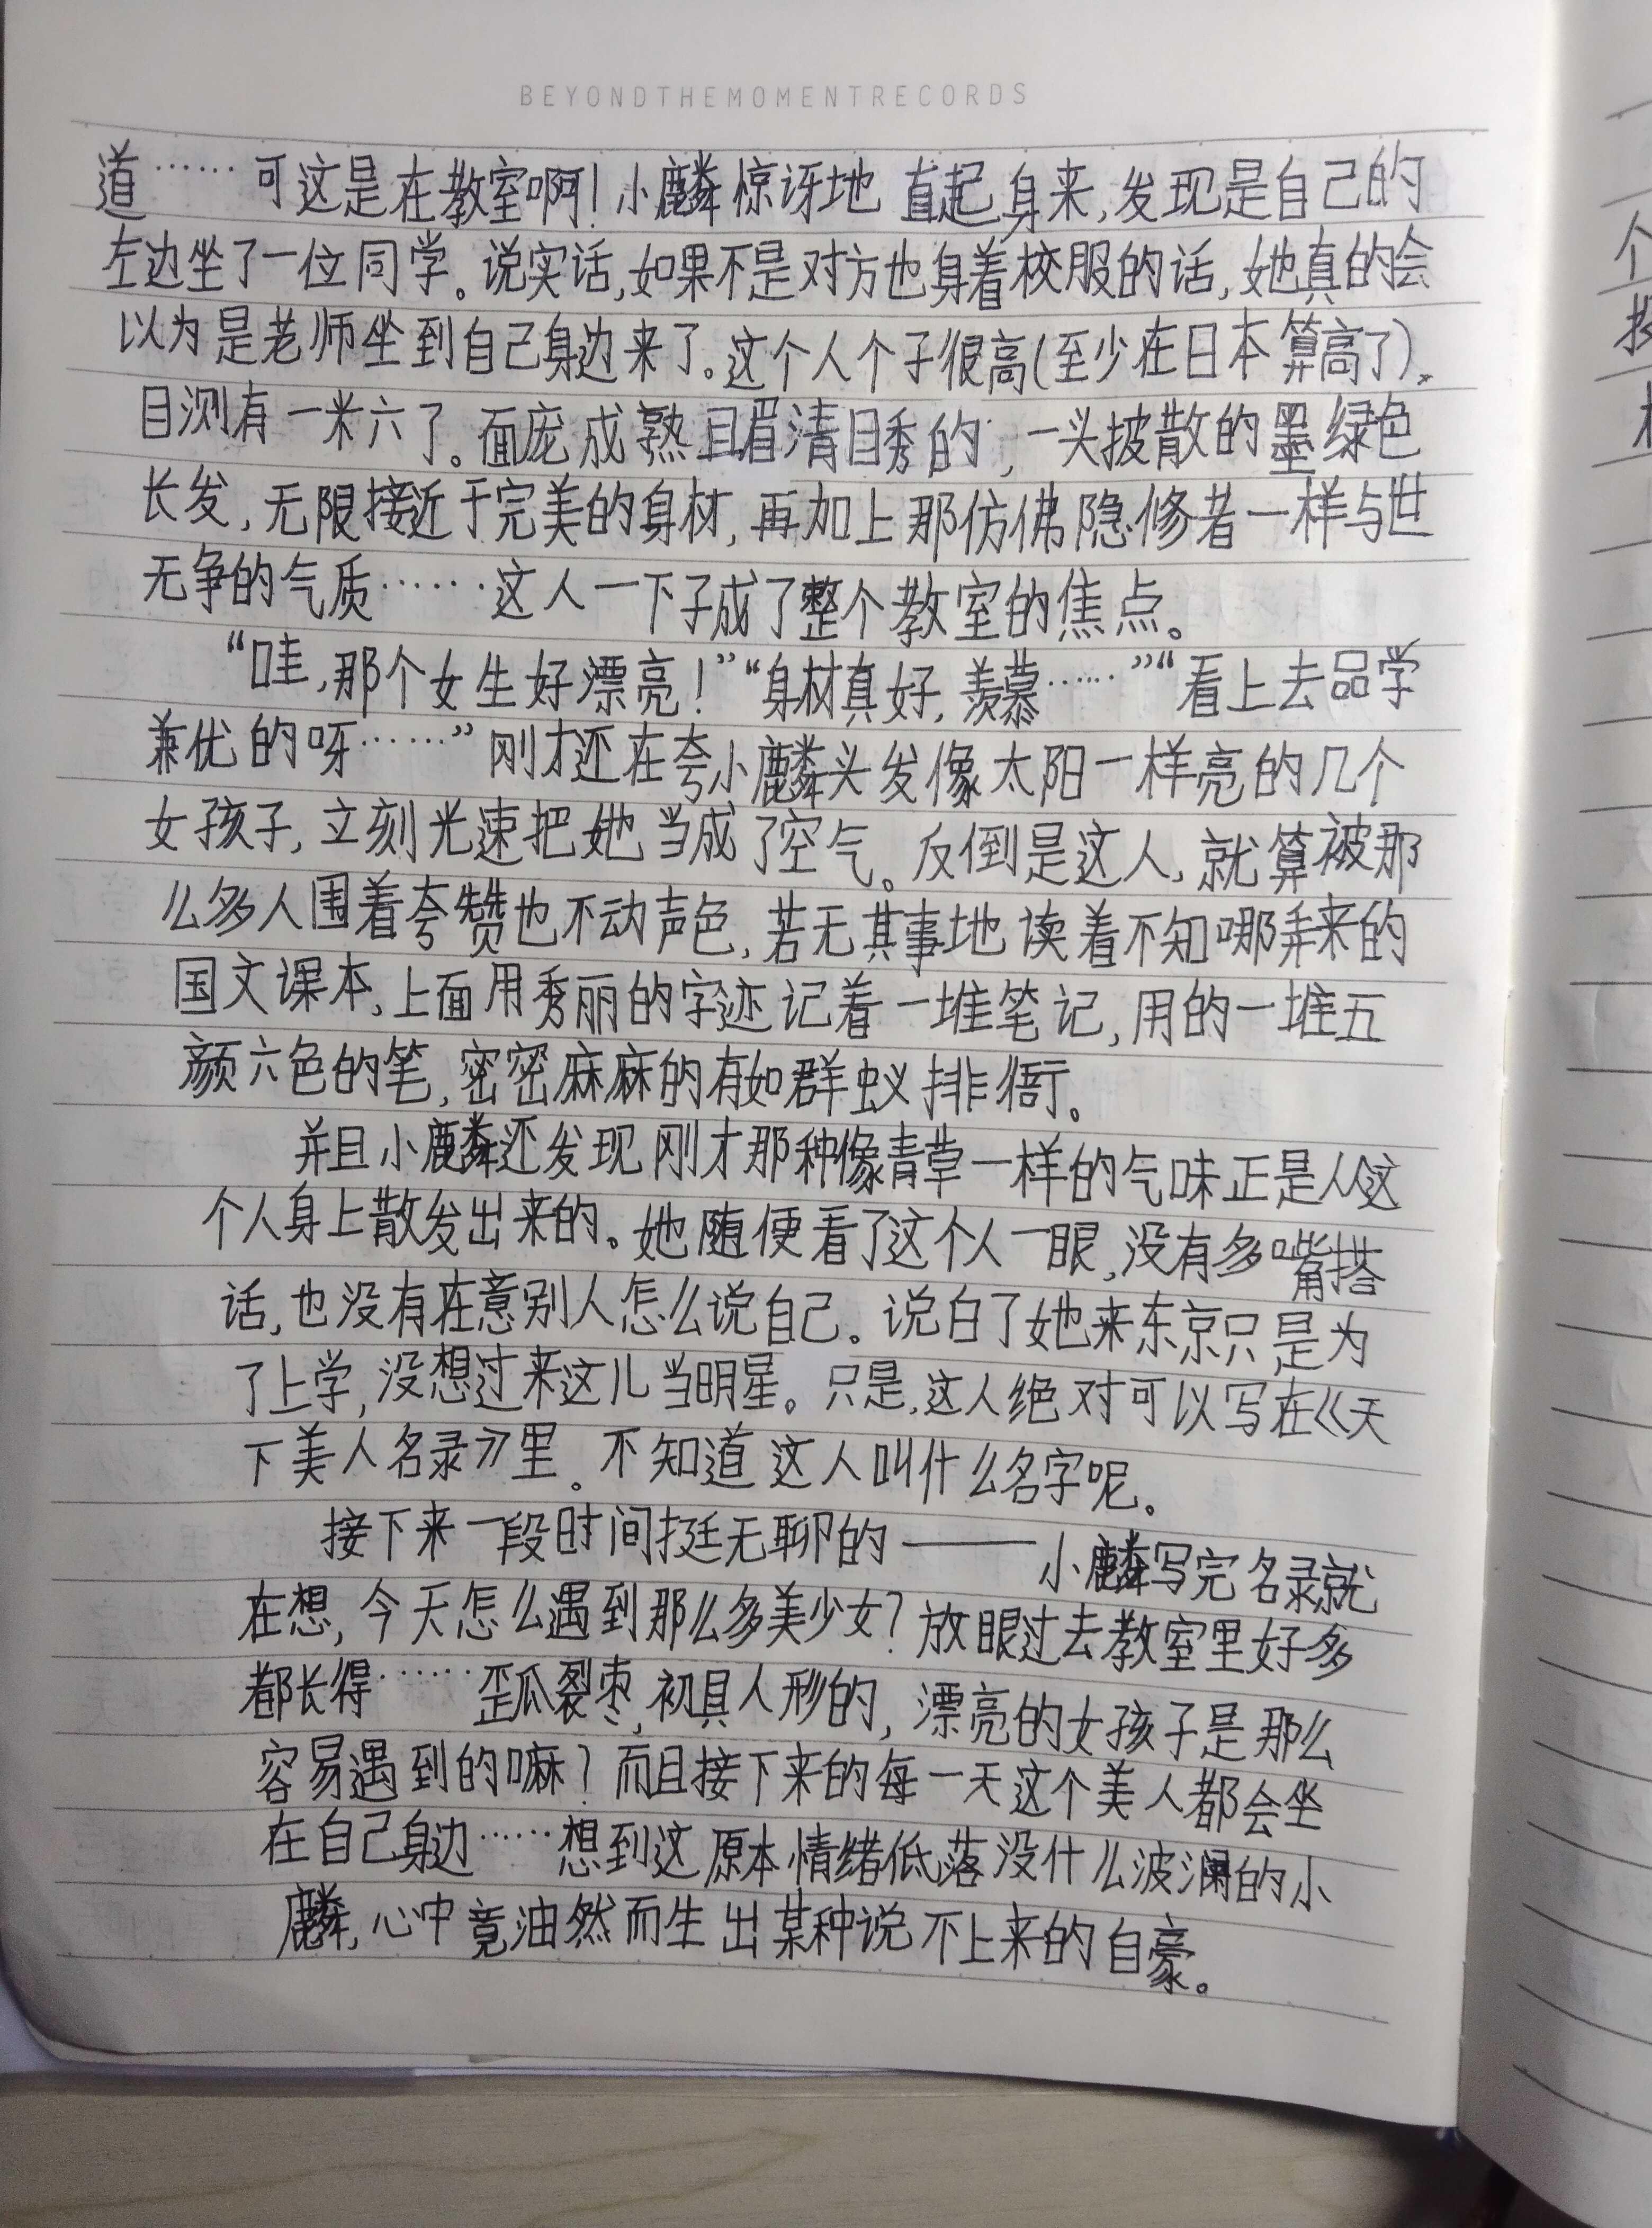 BEYONDTHEMOMENTRECORDS
道……可这是在教室啊！小麟惊讶地直起身来,发现是自己的
左边坐了一位同学。说实话,如果不是对方也身着校服的话,她真的会
以为是老师坐到自己身边来了。这个人个子很高(至少在日本算高了)。
目测有一米六了。面庞成熟且眉清目秀的,一头披散的墨绿色
长发,无限接近于完美的身材,再加上那仿佛隐修者一样与世
无争的气质……这人一下子成了整个教室的焦点。
“哇,那个女生好漂亮！”“身材真好,羡慕……”“看上去品学
兼优的呀……”刚才还在夸小麟头发像太阳一样亮的几个
女孩子,立刻光速把她当成了空气。反倒是这人,就算被那
么多人围着夸赞也不动声色,若无其事地读着不知哪弄来的
国文课本,上面用秀丽的字迹记着一堆笔记,用的一堆五
颜六色的笔,密密麻麻的有如群蚁排衙。
并且小麟还发现刚才那种像青草一样的气味正是从这
个人身上散发出来的。她随便看了这个人一眼,没有多嘴搭
话,也没有在意别人怎么说自己。说白了她来东京只是为
了上学,没想过来这儿当明星。只是,这人绝对可以写在《天
下美人名录》里。不知道这人叫什么名字呢。
接下来一段时间挺无聊的——小麟写完名录就
在想,今天怎么遇到那么多美少女？放眼过去教室里好多
都长得……歪瓜裂枣,初具人形的,漂亮的女孩子是那么
容易遇到的嘛？而且接下来的每一天这个美人都会坐
在自己身边……想到这原本情绪低落没什么波澜的小
麟,心中竟油然而生出某种说不上来的自豪。
个